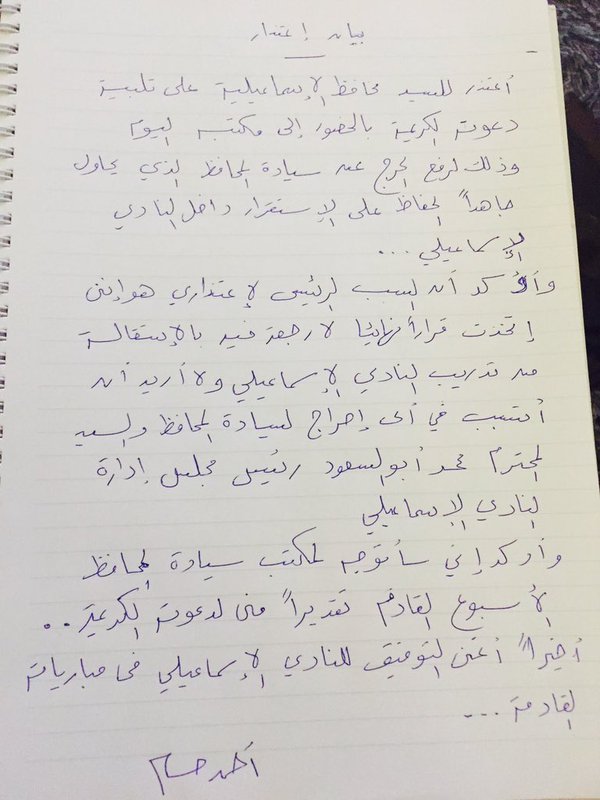 بيان إعتذار
أعتذر للسيد محافظ الإسماعيلية على تلبية
دعوته الكريمة بالحضور إلى مكتبه اليوم
وذلك لرفع الحرج عن سيادة المحافظ الذي يحاول
جاهداً الحفاظ على الإستقرار داخل النادي
الإسماعيلي ...
وأؤكد أن السبب الرئيسى لإعتذاري هو إننى
إتخذت قراراً نهائيا لا رجعة فيه بالإستقالة
من تدريب النادي الإسماعيلي ولا أريد أن
أتسبب في أى إحراج لسيادة المحافظ والسيد
المحترم محمد أبو السعود رئيس مجلس إدارة
النادي الإسماعيلي
وأؤكد إني سأتوجه لمكتب سيادة المحافظ
الأسبوع القادم تقديراً منى لدعوته الكريمة ..
أخيراً أتمنى التوفيق للنادي الإسماعيلي فى مبارياته
القادمة ...
أحمد حسام